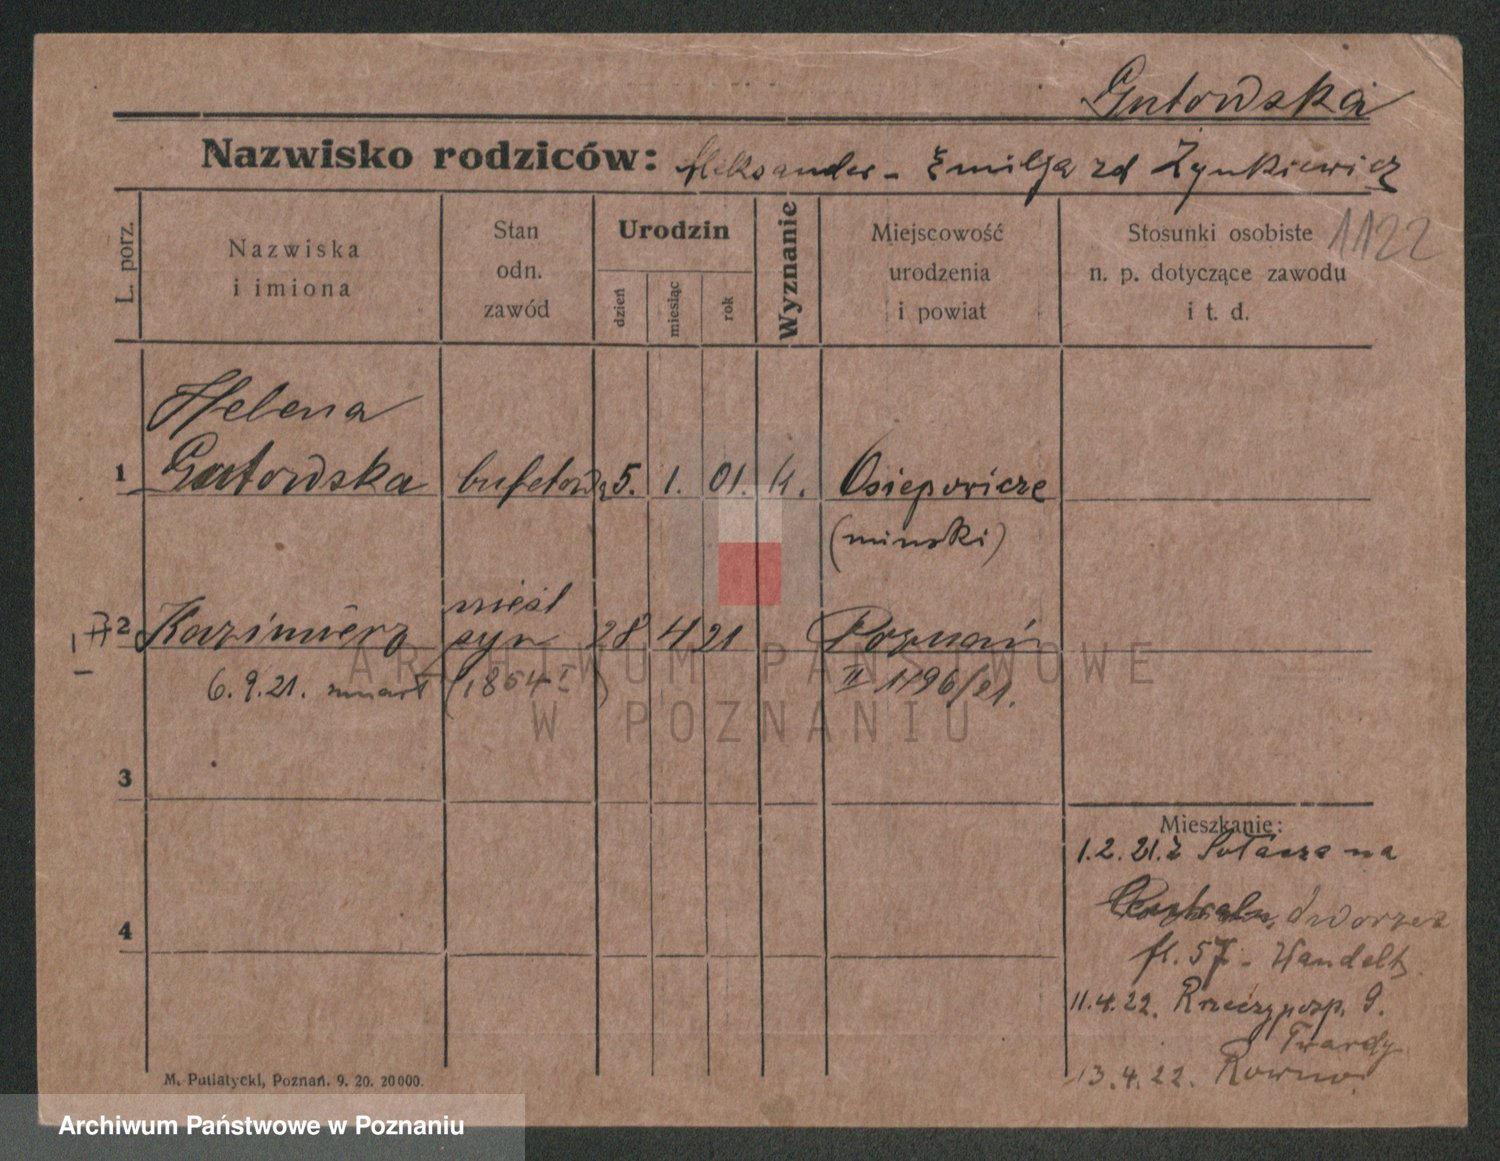 Gutowska
Nazwisko rodziców: Aleksander - Emilja zd Żynkiewicz
1122
L. porz.
Nazwiska
i imiona
Stan
odn.
zawód
Urodzin
dzień
miesiąc
rok
Wyznanie
Miejscowość
urodzenia
i powiat
Stosunki osobiste
n. p. dotyczące zawodu
i t. d.
Helena
1 Gutowska bufetowa 5. 1. 01. k. Osiepowicze
(minski)
nieśl
2 Kazimierz syn 28 4 21 Poznań
6.9.21. zmarł (1854 I) II 1196/21.
ARCHIWUM PAŃSTWOWE
W POZNANIU
3
Mieszkanie:
1.2.21. z Sołacza na
4
dworzec
fl. 57 - Handelt.
11.4.22. Rzeczyposp. 9.
Twardy
13.4.22. Rowno.
M. Putiatycki, Poznań. 9. 20. 20000.
Archiwum Państwowe w Poznaniu